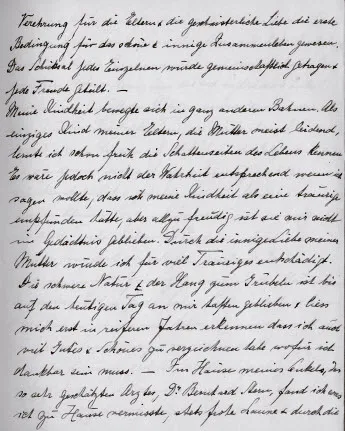 Verehrung für die Eltern & die geschwisterliche Liebe die erste
Bedingung für das schöne & innige Zusammenleben gewesen.
Das Schicksal jedes Einzelnen wurde gemeinschaftlich getragen &
jede Freude geteilt. —
Meine Kindheit bewegte sich in ganz anderen Bahnen. Als
einziges Kind meiner Eltern, die Mutter meist leidend,
lernte ich schon früh die Schattenseiten des Lebens kennen
Es wäre jedoch nicht der Wahrheit entsprechend wenn ich
sagen wollte, dass ich meine Kindheit als eine traurige
empfunden hätte, aber allzu freudig ist sie mir nicht
im Gedächtnis geblieben. Durch die innige Liebe meiner
Mutter wurde ich für viel Trauriges entschädigt.
Die schwere Natur & der Hang zum Grübeln ist bis
auf den heutigen Tag an mir haften geblieben & liess
mich erst in reiferen Jahren erkennen dass ich auch
viel Gutes & Schönes zu verzeichnen habe wofür ich
dankbar sein muss. — Im Hause meines Onkels, des
so sehr geschätzten Arztes, Dr Bernhard Stern, fand ich was
ich zu Hause vermisste, stets frohe Laune & durch die